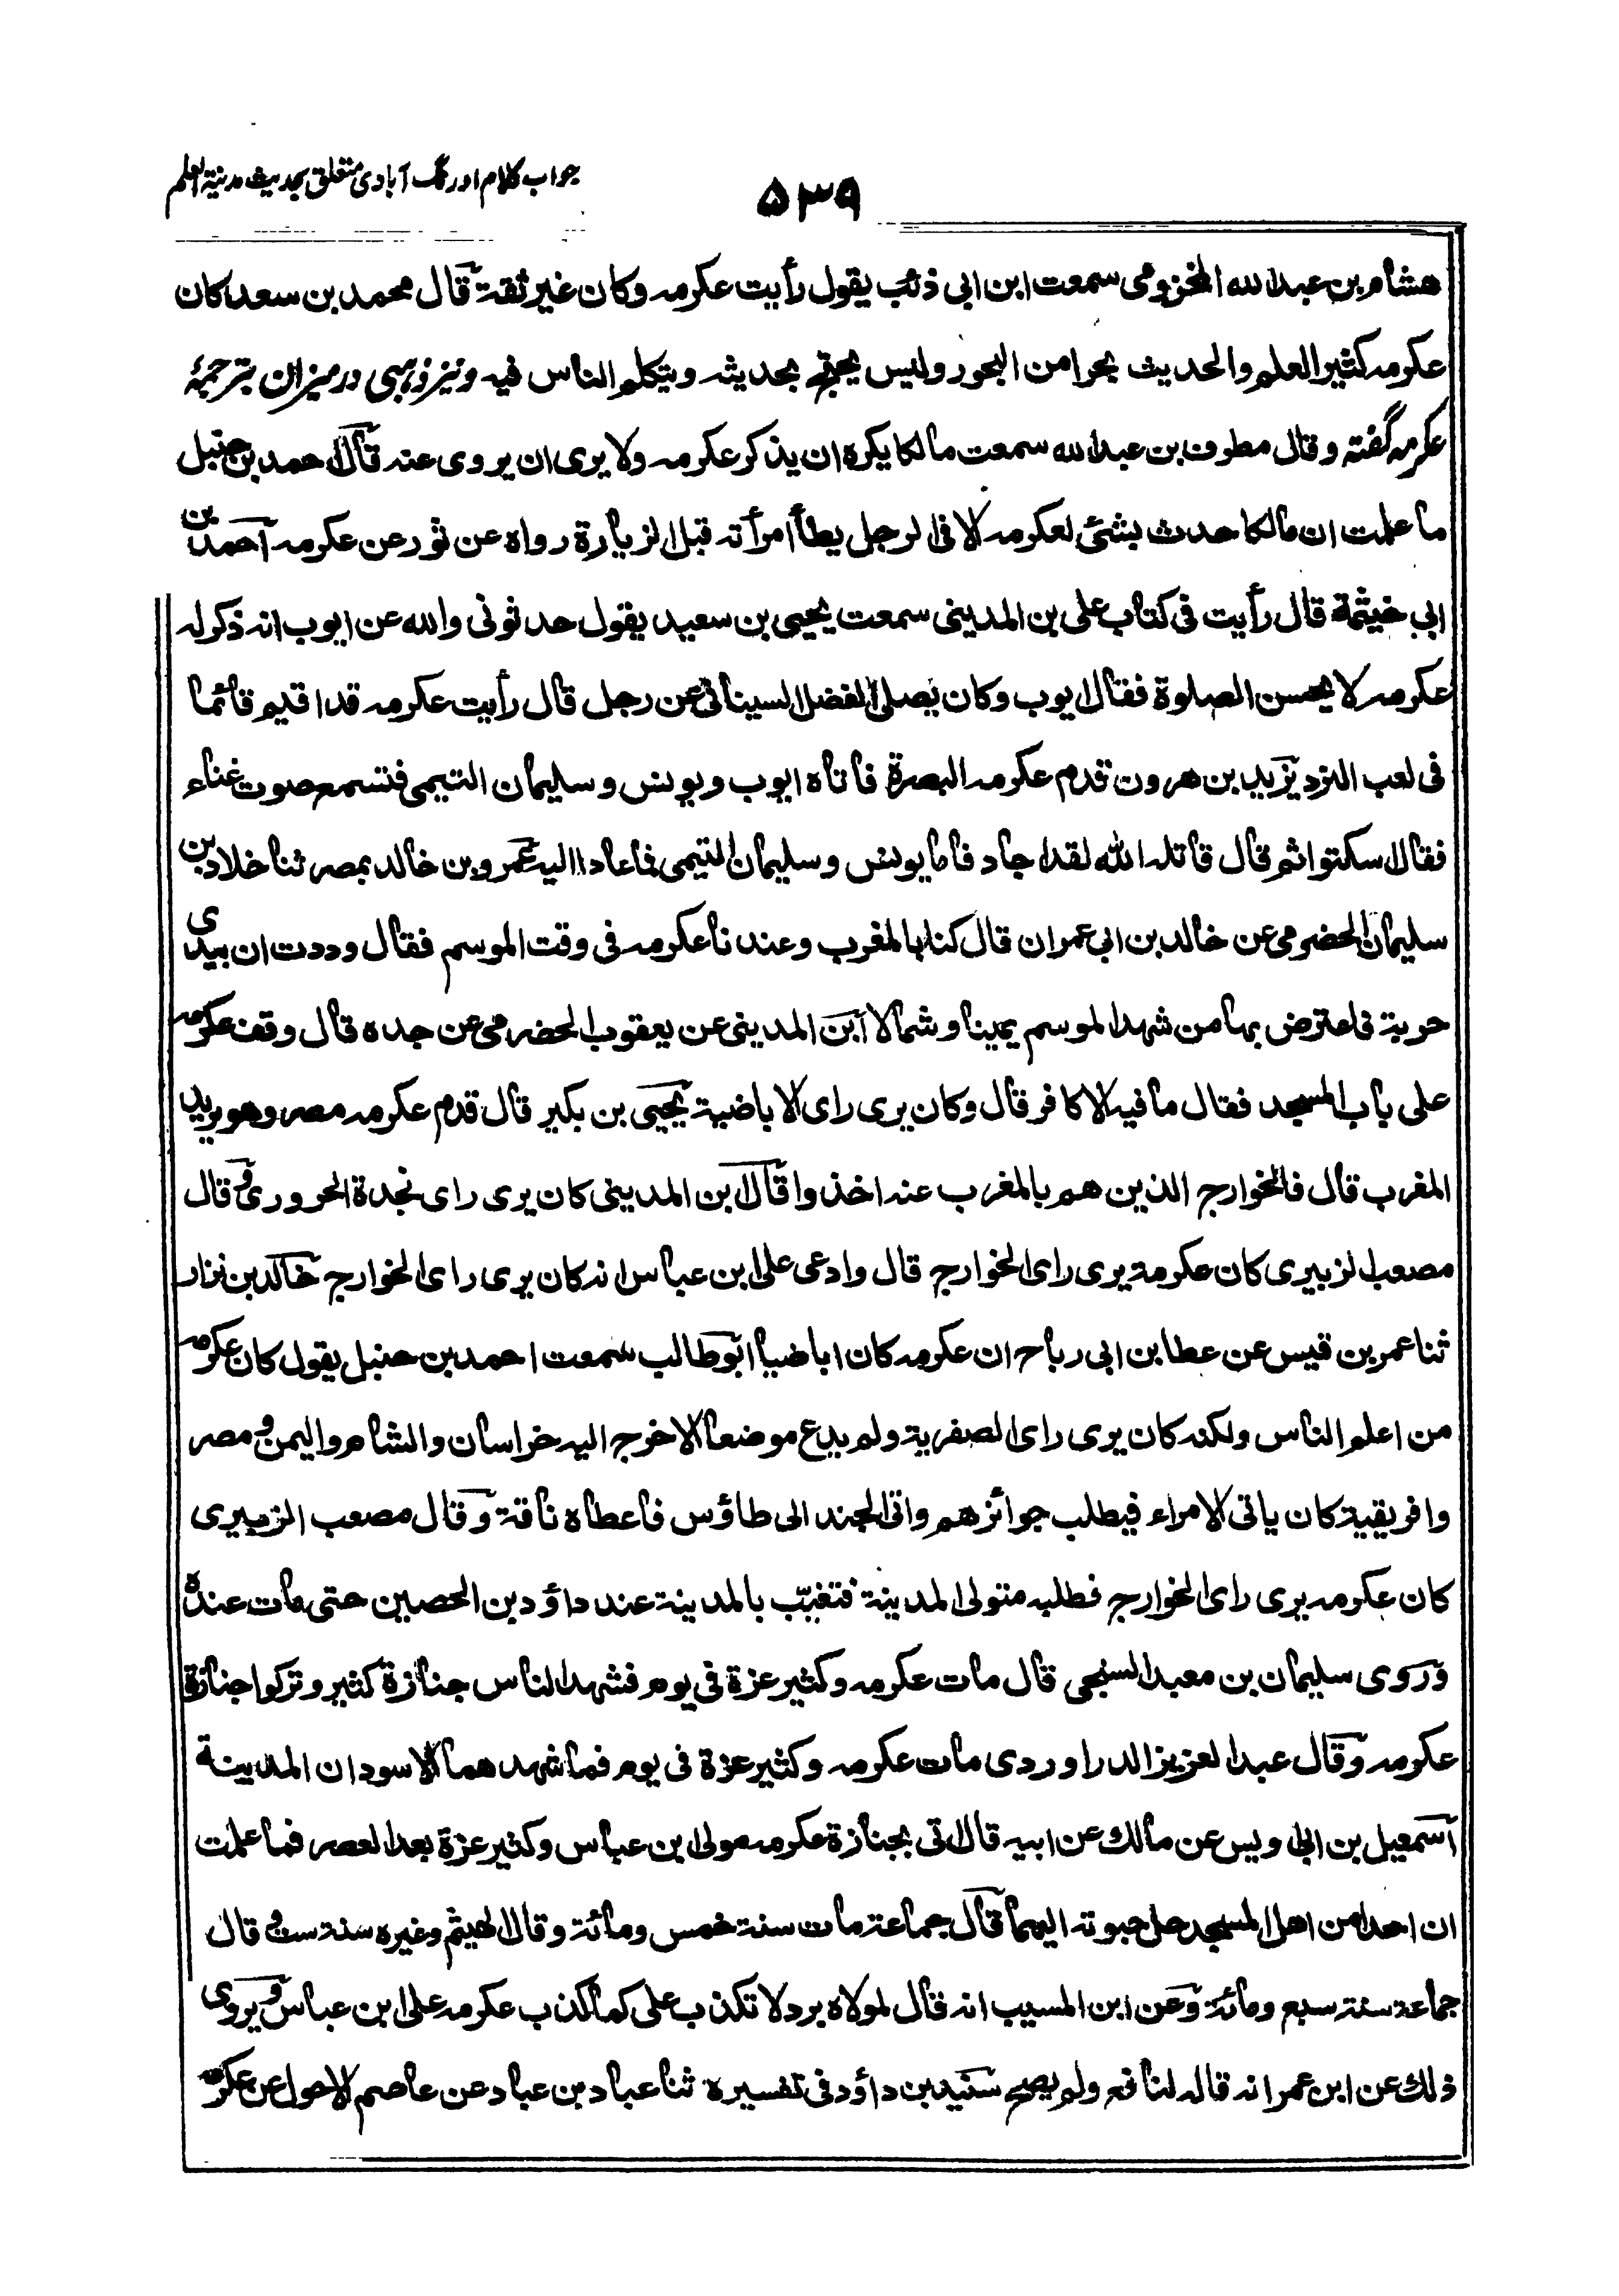 جواب كلام اورنگ آبادى متعلق بحديث مدينة العلم
۵۳۹
هشام بن عبد الله المخزومى سمعت ابن ابى ذئب يقول رأيت عكرمه وكان غير ثقة قال محمد بن سعد كان
عكرمه كثير العلم والحديث بحرا من البحور وليس يحتج بحديثه ويتكلم الناس فيه ونيز ذهبى در ميزان بترجمهٔ
عكرمه گفته وقال مطرف بن عبد الله سمعت مالكا يكره ان يذكر عكرمه ولا يرى ان يروى عنه قال احمد بن حنبل
ما علمت ان مالكا حدث بشئ لعكرمه الا فى الرجل يطأ امرأته قبل الزيارة رواه عن ثور عن عكرمه احمد بن
ابى خيثمة قال رأيت فى كتاب على بن المدينى سمعت يحيى بن سعيد يقول حدثونى والله عن ايوب انه ذكر له
عكرمه لا يحسن الصلوة فقال ايوب وكان يصلى الفضل السينانى عن رجل قال رأيت عكرمه قد اقيم قائما
فى لعب النرد يزيد بن هرون قدم عكرمه البصرة فاتاه ايوب ويونس وسليمان التيمى فتسمع صوت غناء
فقال اسكتوا ثم قال قاتله الله لقد اجاد فاما يونس وسليمان التيمى فما عادا اليه عمرو بن خالد بمصر ثنا خلاد بن
سليمان الحضرمى عن خالد بن ابى عمران قال كنا بالمغرب وعندنا عكرمه فى وقت الموسم فقال وددت ان بيدى
حربة فاعترض بها من شهد الموسم يمينا وشمالا ابن المدينى عن يعقوب الحضرمى عن جده قال وقف عكرمه
على باب المسجد فقال ما فيه الا كافر قال وكان يرى راى الاباضية يحيى بن بكير قال قدم عكرمه مصر وهو يريد
المغرب قال فالخوارج الذين هم بالمغرب عنه اخذوا قال ابن المدينى كان يرى راى نجدة الحرورى وقال
مصعب الزبيرى كان عكرمة يرى راى الخوارج قال وادعى على ابن عباس انه كان يرى راى الخوارج خالد بن نزار
ثنا عمر بن قيس عن عطا بن ابى رباح ان عكرمه كان اباضيا ابو طالب سمعت احمد بن حنبل يقول كان عكرمه
من اعلم الناس ولكنه كان يرى راى الصفرية ولم يدع موضعا الا خرج اليه خراسان والشام واليمن ومصر
وافريقية كان ياتى الامراء فيطلب جوائزهم واتى الجند الى طاؤس فاعطاه ناقة وقال مصعب الزبيرى
كان عكرمه يرى راى الخوارج فطلبه متولى المدينة فتغيّب بالمدينة عند داؤد بن الحصين حتى مات عنده
وروى سليمان بن معبد السنجى قال مات عكرمه وكثير عزة فى يوم فشهد الناس جنازة كثير وتركوا جنازة
عكرمه وقال عبد العزيز الدراوردى مات عكرمه وكثير عزة فى يوم فما شهدهما الا سودان المدينة
اسمعيل بن ابى اويس عن مالك عن ابيه قال اتى بجنازة عكرمه مولى ابن عباس وكثير عزة بعد العصر فما علمت
ان احدا من اهل المسجد حل حبوته اليهما قال جماعة مات سنة خمس ومائة وقال الهيثم وغيره سنة ست وقال
جماعة سنة سبع ومائة وعن ابن المسيب انه قال لمولاه برد لا تكذب على كما كذب عكرمه على ابن عباس ويروى
ذلك عن ابن عمر انه قاله لنافع ولم يصح سنيد بن داؤد فى تفسيره ثنا عباد بن عباد عن عاصم الاحول عن عكرمه